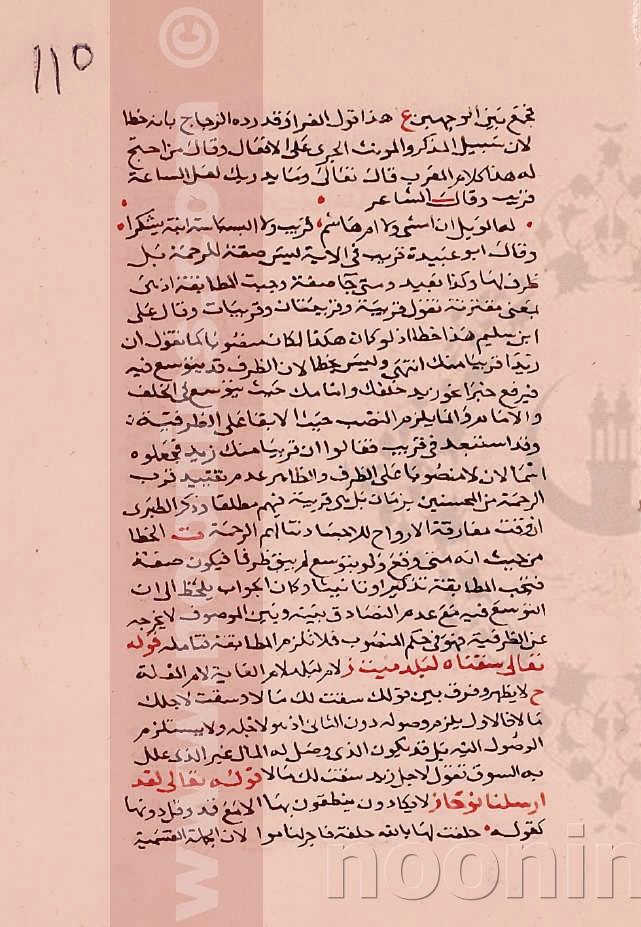 ١١٥
فجمع بين الوجهين ع هذا قول الفراء وقد رده الزجاج بانه خطا
لان سبيل المذكر والمونث الجرى على الافعال وقال من احتج
له هذا كلام العرب قال تعالى وما يدريك لعل الساعة
قريب وقال الشاعر
له الويل ان امسى ولا ام هاشم قريب ولا البسباسة ابنة يشكرا
وقال ابو عبيدة قريب فى الاية ليس صفة للرحمة بل
ظرف لها وكذا بعيد ومتى جا صفة وجبت المطابقة اذ هى
بمعنى مقتربة تقول قريبة وقريبتان وقريبات وقال على
ابن سليم هذا خطا اذ لو كان هكذا لكان منصوبا كما تقول ان
زيدا قريبا منك انتهى وليس بخطا لان الظرف قد يتوسع فيه
فيرفع خبرا نحو زيد خلفك وامامك حيث يتوسع فى الخلف
والامام وانما يلزم النصب حيث الابقا على الظرفية
وقد استعمل فى قريب فقالوا ان قريبا منك زيد فجعلوه
اسما لان لا منصوبا على الظرف والظاهر عدم تقييد قرب
الرحمة من المحسنين بزمان بل هى قريبة منهم مطلقا وذكر الطبرى
ان وقت مفارقة الارواح للاجساد تنالهم الرحمة ت الخطا
من حيث انه متى وقع ولو بتوسع لم يبق ظرفا فيكون صفة
فتجب المطابقة تذكيرا وتانيثا وكان الجواب يلحظ الى ان
التوسع فيه مع عدم التصادق بينه وبين الموصوف لا يخرجه
عن الظرفية فهو فى حكم المنصوب فلا تلزم المطابقة فتامله قوله
تعالى سقناه لبلد ميت ز لام لبلد لام الغاية لام العلة
ح لا يظهر وفرق بين قولك سقت لك مالا وسقت لاجلك
مالا فالاول يلزم وصوله دون الثانى اذ هو لاجله ولا يستلزم
الوصول اليه بل قد يكون الذى وصل له المال غير الذى علل
به السوق تقول لاجل زيد سقت لك مالا قوله تعالى لقد
ارسلنا نوحا ز لا يكادون ينطقون بهذا اللام مع قد وقل دونها
كقوله حلفت لها بالله حلفة فاجر لناموا لان الجملة القسمية
www.noormags.com ©
noonim